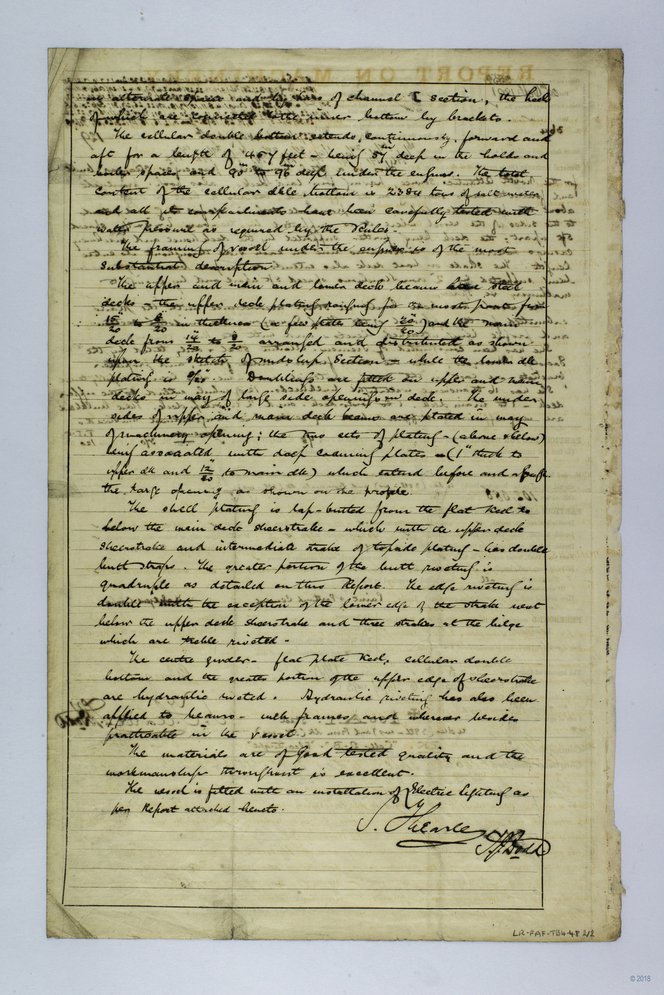 in alternate spaces and to be of channel [ section, the heels
of which are connected to the inner bottom by brackets.
The cellular double bottom extends, continuously, forward and
aft for a length of 457 feet - being 57" deep in the holds and
boiler spaces, and 90" to 96" deep under the engines. The total
content of the cellular dble bottom is 2384 tons of salt water
and all its compartments have been carefully tested with
water pressure as required by the Rules.
The framing of vessel under the engines is of the most
substantial description.
The upper and main and lower deck beams steel
decks - the upper deck plating ranging for the most part from
15/20 to 8/20 in thickness (a few plates being 20/20) and the main
deck from 14/20 to 8/20 arranged and distributed as shown
upon the sketch of midship Section - while the lower dk
plating is Doublings are fitted on upper and main
decks in way of large side openings in deck. The under
sides of upper and main deck beams are plated in way
of machinery opening; the two sets of plating - (above & below)
being associated with deep coaming plates - (1" thick to
upper dk and 12/20 to main dk) which extend before and abaft
the large opening as shown on the profile.
The shell plating is lap-butted from the flat keel to
below the main deck sheerstrake - which with the upper deck
sheerstrake and intermediate strake of topside plating - has double
butt straps. The greater portion of the butt riveting is
quadruple as detailed on this Report. The edge riveting is
double with the exception of the lower edge of the strake next
below the upper deck sheerstrake and three strakes at the bilge
which are treble riveted -
The centre girder - flat plate keel, cellular double
bottom and the greater portion of the upper edge of sheerstrake
are hydraulic riveted. Hydraulic riveting has also been
applied to beams - web frames and wherever besides
practicable in the vessel.
The materials are of good tested quality and the
workmanship throughout is excellent.
The vessel is fitted with an installation of Electric lighting as
per Report attached hereto.
J. Hearle
H J Dodd
LR-FAF-TBN-48 2/2
© 2018